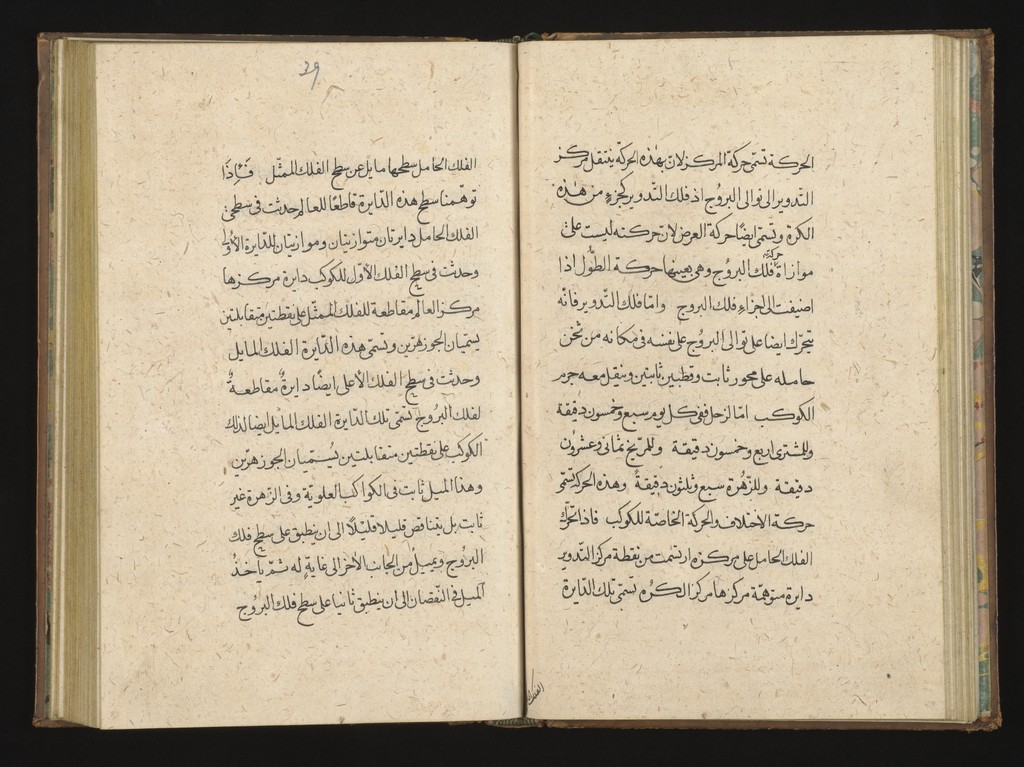 الحركة تسمّى حركة المركز لان بهذه الحركة ينتقل مركز
التدوير الى توالى البروج اذ فلك التّدوير كجزءٍ من هذه
الكرة وتسمّى ايضًا حركة العرض لانّ حركته ليست على
موازاة حركة فلك البروج وهى بعينها حركة الطّول اذا
اضيفت الى اجزاء فلك البروج وامّا فلك التّدوير فانّه
يتحرّك ايضا على توالى البروج على نفسه فى مكانه من ثخن
حامله على محور ثابت وقطبين ثابتين وينقل معه جرم
الكوكب امّا لزحل ففى كلّ يوم سبع وخمسون دقيقة
وللمشترى اربع وخمسون دقيقة وللمرّيخ ثمانى وعشرون
دقيقة وللزّهرة سبع وثلثون دقيقةً وهذه الحركة تسمّى
حركة الاختلاف والحركة الخاصّة للكوكب فاذا تحرّك
الفلك الحامل على مركزه ارتسمت من نقطة مركز التّدوير
دايرة متوهّمة مركزها مركز الكره تسمّى تلك الدّايرة
الفلك
39
الفلك الحامل سطحها مايل عن سطح الفلك الممثّل فَاِذَا
توهّمنا سطح هذه الدّايرة قاطعًا للعالم حدثت فى سطحى
الفلك الحامل دايرتان متوازيتان وموازيتان للدّايرة الأولى
وحدثت فى سطح الفلك الأوّل للكوكب دايرة مركزها
مركز العالم مقاطعة للفلك الممثّل على نقطتين متقابلتين
يسمّيان الجوزهرّين وتسمّى هذه الدّايرة الفلك المايل
وحدثت فى سطح الفلك الأعلى ايضًا دايرةٌ مقاطعةٌ
لفلك البروج تسمّى تلك الدّايرة الفلك المايل ايضا لذلك
الكوكب على نقطتين متقابلتين يُسمّيان الجوزهرّين
وهذا الميل ثابت فى الكواكب العلويّة وفى الزّهرة غير
ثابت بل يتناقص قليلا قليلًا الى ان ينطبق على سطح فلك
البرُوج ويميلُ من الجانب الآخر الى غايةٍ له ثمّ ياخذُ
الميل فى النّقصان الى ان ينطبق ثانيا على سطح فلك البروج